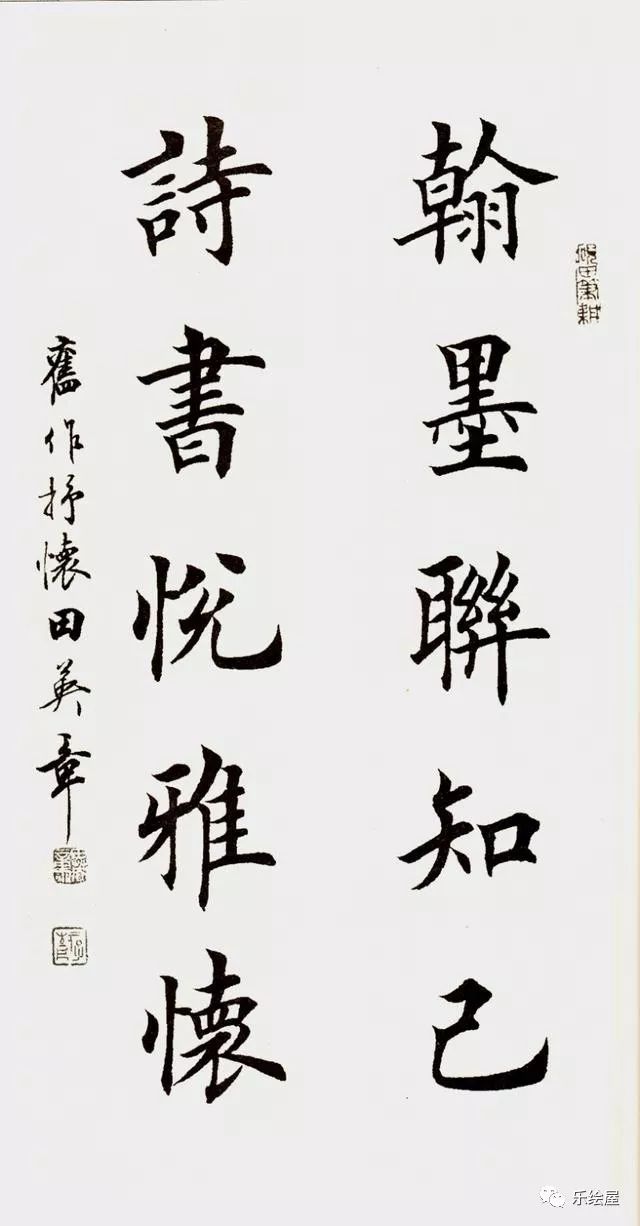 翰墨聯知己
詩書悦雅懷
舊作抒懷田英章
乐绘屋